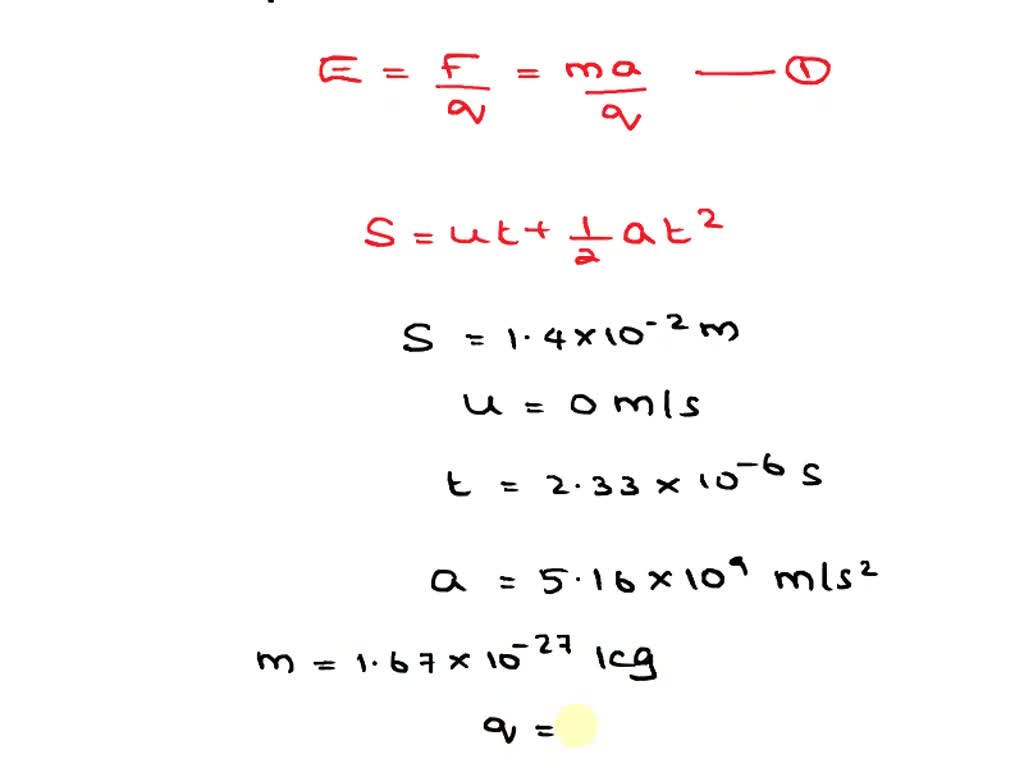 E = F/q = ma/q —— ①
S = ut + 1/2 at²
S = 1.4 × 10⁻² m
u = 0 m/s
t = 2.33 × 10⁻⁶ s
a = 5.16 × 10⁹ m/s²
m = 1.67 × 10⁻²⁷ kg
q =